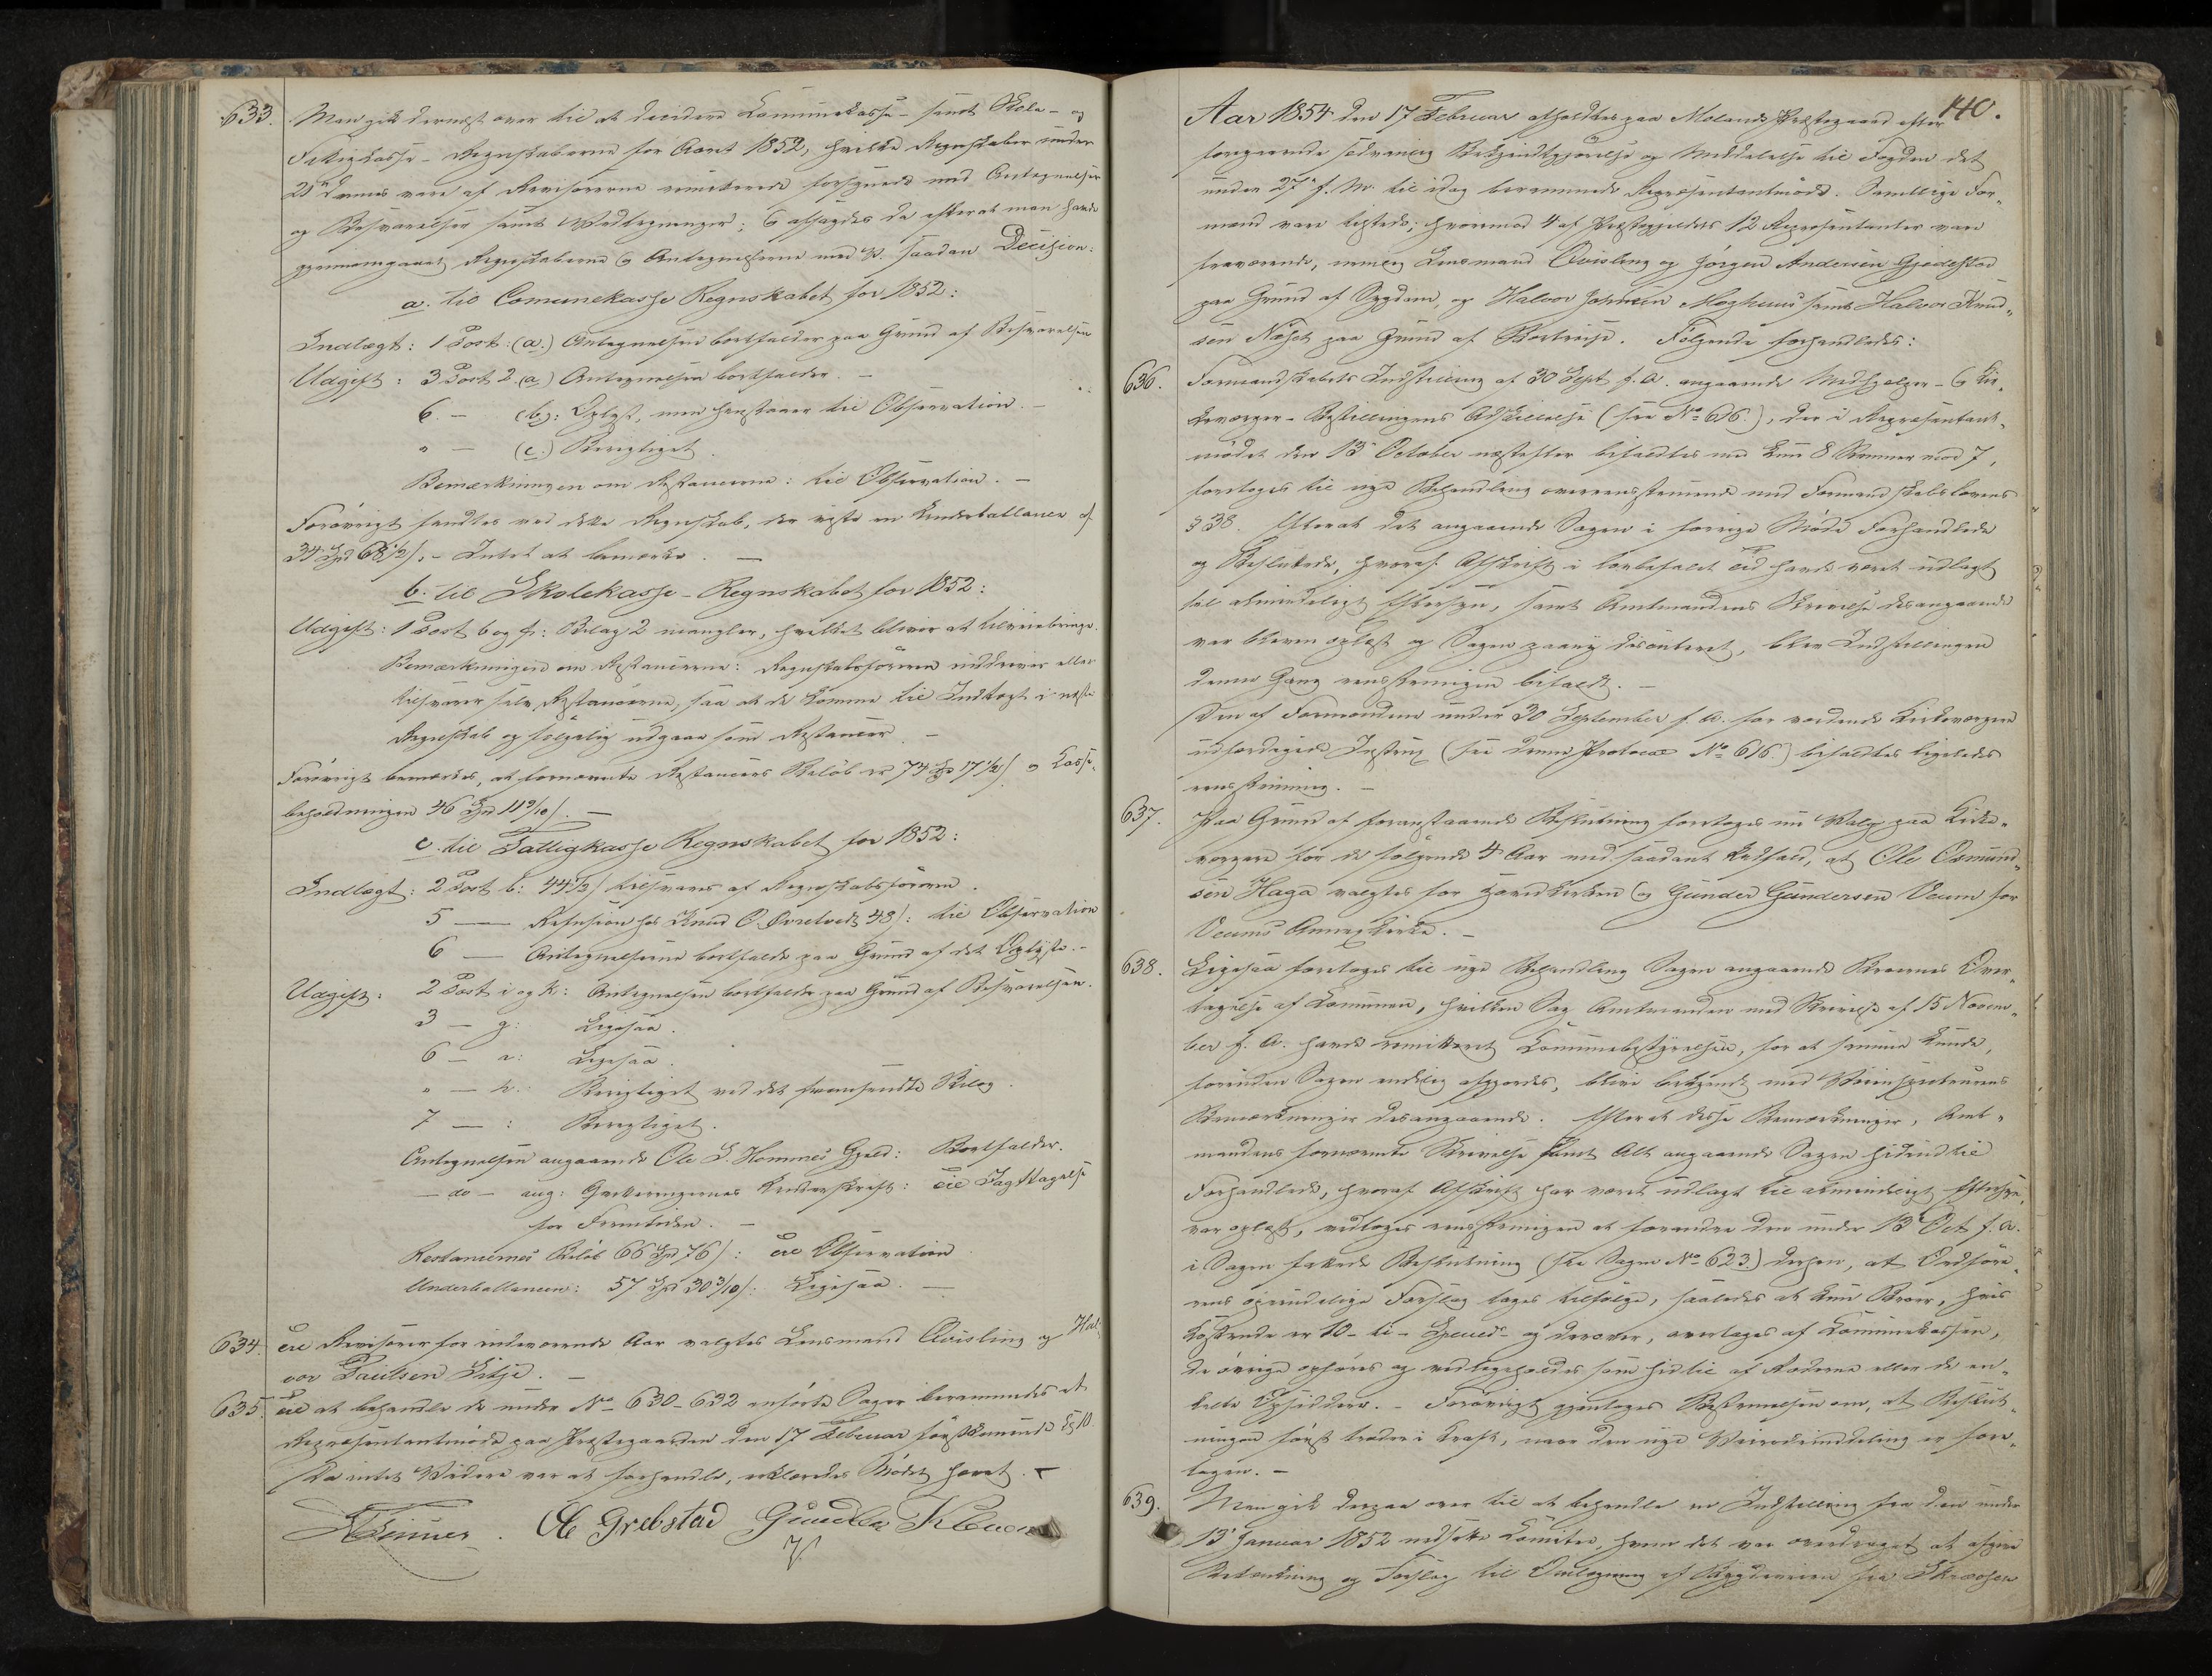 633. Man gik dernæst over til at decidere Communekasse- samt Skole- og
Fattigkasse-Regnskaberne for Aaret 1852, hvilke Regnskaber under
21de dennes vare af Revisorerne remitterede forsynede med Antegnelser
og Besvarelser samt Paategninger; og afsagdes da efterat man havde
gjennemgaaet Regnskaberne og Antegnelserne med V. saadan Decision:
a. til Comunekasse Regnskabet for 1852:
Indtægt: 1 Post: (a.) Antegnelsen bortfalder paa Grund af Besvarelsen
Udgift: 3 Post 2. (a) Antegnelsen bortfalder. –
6. – (b.): Oplyst, men henstaaer til Observation. –
" – (c.) Berigtiget.
Bemærkningen om Restancerne: til Observation. –
Forøvrigt fandtes ved dette Regnskab, der viste en Underballance af
34 Spd 68 1/2 ß, – Intet at bemærke. –
b. til Skolekasse-Regnskabet for 1852:
Udgift: 1 Post b og f: Bilag 2 mangler, hvilket bliver at tilveiebringe.
Bemærkningen om Restancerne: Regnskabsføreren inddriver eller
tilsvarer selv Restancerne, saa at de komme til Indtægt i næste
Regnskab og følgelig udgaar som Restancer. –
Forøvrigt bemærkes, at fornævnte Restancers Beløb er 74 Spd 17 1/2 ß og Casse-
beholdningen 46 Spd 11 9/10 ß. –
c. til Fattigkasse Regnskabet for 1852:
Indtægt: 2 Post b: 44 1/2 ß tilsvares af Regnskabsføreren.
5 — Refusion hos Knud O. Øvretveit 48 ß: til Observation
6 — Antegnelserne bortfalde paa Grund af det Oplyste. –
Udgift: 2 Post i og k: Antegnelsen bortfalder paa Grund af Besvarelsen.
3 – g: Ligesaa.
6 – a: Ligesaa.
" – h: Berigtiget ved det fremsendte Bilag.
7 – : Berigtiget.
Antegnelsen angaaende Ole S. Hommes Gjæld: Bortfalder.
– do – ang: Qvitteringernes Underskrift: til Iagttagelse
for Fremtiden. –
Restancernes Beløb 66 Spd 76 ß: til Observation
Underballancen: 57 Spd 30 3/10 ß: Ligesaa. –
634. til Revisorer for indeværende Aar valgtes Lensmand Qvisling og Hal-
vor Paulsen Lilje. –
635. til at behandle de under No 630–632 anførte Sager berammedes et
Repræsentantmøde paa Præstegaarden den 17 Februar førstkommende Kl 10.
Da intet Videre var at forhandle, erklæredes Mødet hævet. –
Ole Grebstad Gunder
140.
Aar 1854 den 17 Februar afholdtes paa Molands Præstegaard efter
foregaaende sædvanlig Bekjendtgjørelse og Meddelelse til Fogden det
under 27de f. M. til idag berammede Repræsentantmøde. Samtlige For-
mænd vare tilstede; hvorimod 4 af Præstegjeldets 12 Repræsentanter vare
fraværende, nemlig Lensmand Qvisling og Jørgen Andersen Gjedestad
paa Grund af Sygdom, og Halvor Johnsen Moghuus samt Halvor Knud-
sen Næset paa Grund af Bortreise. Følgende forhandledes:
636. Formandskabets Indstilling af 30 Sept f. A. angaaende Medhjelper- og Kir-
keværger-Bestillingens Adskillelse (see No 616.), der i Repræsentant-
mødet den 13de October næstefter bifaldtes med kun 8 Stemmer mod 7,
foretoges til nye Behandling overeensstemmende med Formandskabslovens
§ 38. Efterat det angaaende Sagen i forrige Møde Forhandlede
og Besluttede, hvoraf Afskrift i lovbefalet Tid havde været udlagt
til almindeligt Eftersyn, samt Amtmandens Skrivelse desangaaende
var bleven oplæst og Sagen paany discuteret, blev Indstillingen
denne Gang eenstemmigen bifaldt. –
Den af Formændene under 30 September f. A. for vordende Kirkeværgere
udfærdigede Instrux (see denne Protocol No 616.) bifaldtes ligeledes
eenstemmig. –
637. Paa Grund af foranstaaende Beslutning foretoges nu Valg paa Kirke-
værgere for de følgende 4 Aar med saadant Udfald, at Ole Osmund-
sen Haga valgtes for Hovedkirken og Gunder Gundersen Veum for
Veums Annexkirke. –
638. Ligesaa foretoges til nye Behandling Sagen angaaende Broernes Over-
tagelse af Communen, hvilken Sag Amtmanden med Skrivelse af 15 Novem-
ber f. A. havde remitteret Communebestyrelsen, for at samme kunde,
forinden Sagen endelig afgjordes, blive bekjendt med Veiinspecteurens
Bemærkninger desangaaende. Efterat disse Bemærkninger, Amt-
mandens fornævnte Skrivelse samt Alt angaaende Sagen hidindtil
Forhandlede, hvoraf Afskrift har været udlagt til almindeligt Eftersyn,
var oplæst, vedtoges eenstemmigen at forandre den under 13 Oct f. A.
i Sagen fattede Beslutning (see Sagen No 623.) derhen, at Ordføre-
rens oprindelige Forslag tages tilfølge, saaledes at kun Broer, hvis
Kostende er 10 – ti – Speciedr og derover, overtages af Communekassen,
de øvrige opføres og vedligeholdes som hidtil af Roderne eller de en-
kelte Opsiddere. – Forøvrigt gjentoges Bestemmelsen om, at Beslut-
ningen først træder i Kraft, naar den nye Veirodeinddeling er fore-
tagen. –
639. Man gik derpaa over til at behandle en Indstilling fra den under
13de Januar 1852 nedsatte Comitee, hvem det var overdraget at afgive
Betænkning og Forslag til Omlægning af Bygdeveien fra